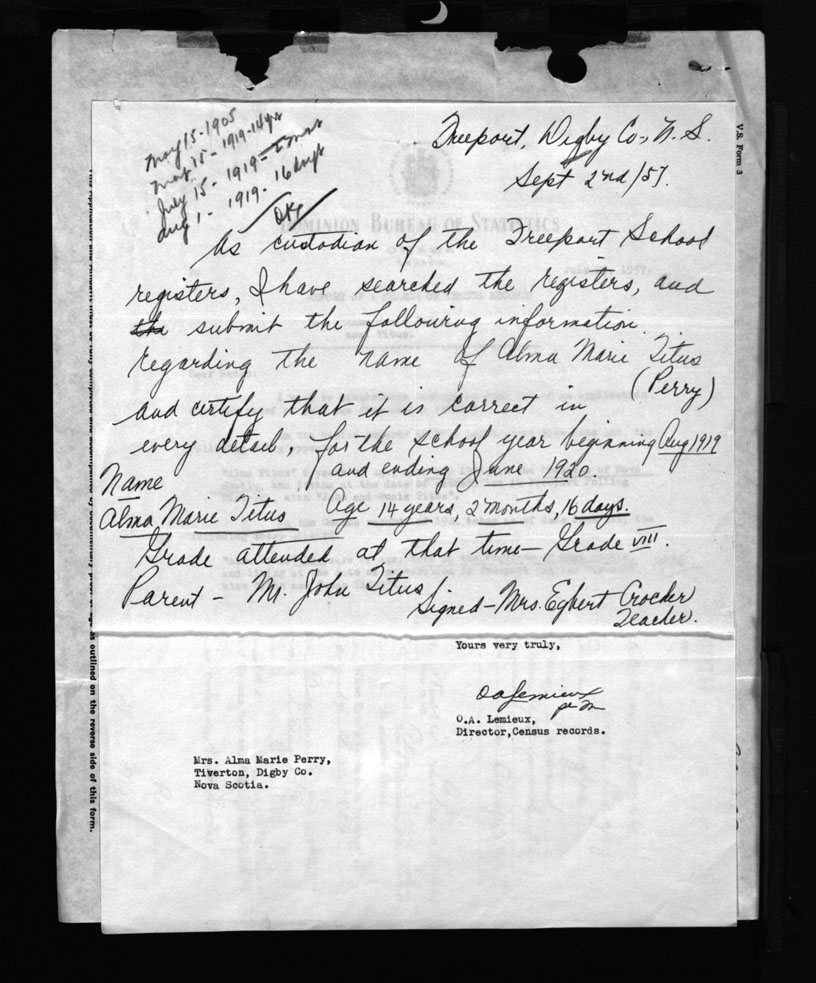 May 15-1905
May. 15-1919-14 yr
July 15-1919-2 mos
Aug 1-1919-16 days
OK
Freeport, Digby Co., N.S.
Sept 2nd/57.
DOMINION BUREAU OF STATISTICS
As custodian of the Freeport School
registers, I have searched the registers, and
the submit the following information
regarding the name of Alma Marie Titus
(Perry)
and certify that it is correct in
every detail, for the school year beginning Aug 1919
and ending June 1920.
Name
Alma Marie Titus Age 14 years, 2 months, 16 days.
Grade attended at that time - Grade VIII.
Parent - Mr. John Titus
Signed - Mrs. Egbert Crocker
Teacher.
Yours very truly,
OA Lemieux
O.A. Lemieux,
Director,Census records.
Mrs. Alma Marie Perry,
Tiverton, Digby Co.
Nova Scotia.
V.S. Form 3
as outlined on the reverse side of this form.